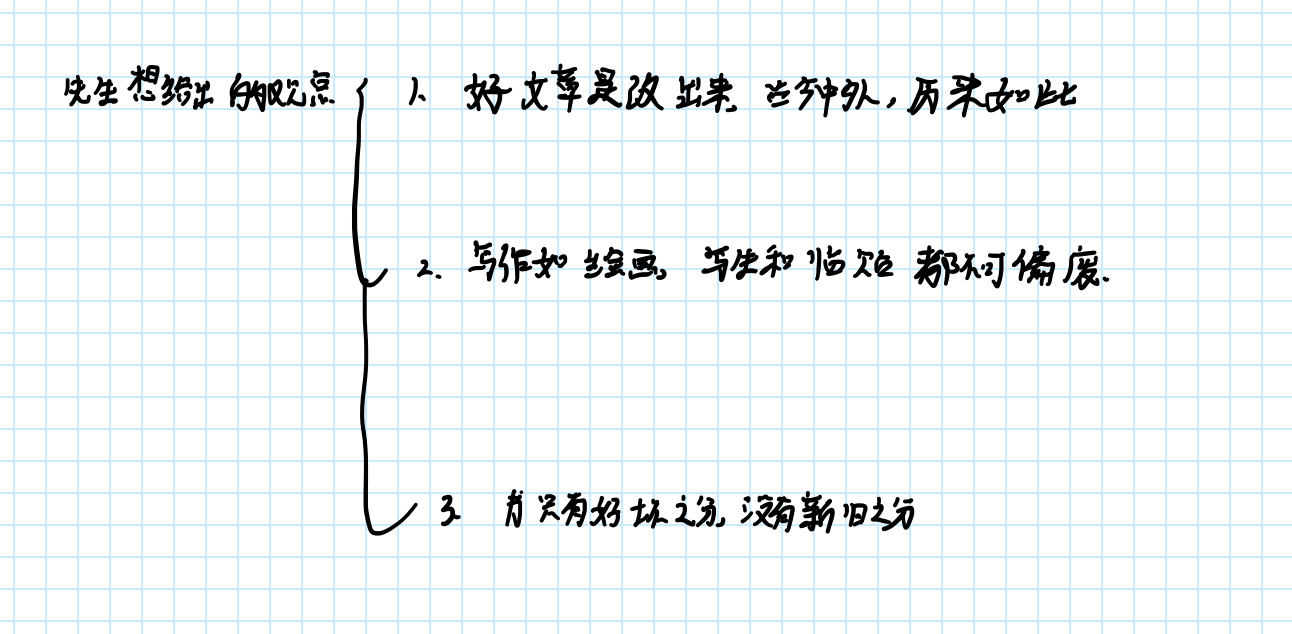 先生想给出的观点
1. 好文章是改出来, 古今中外, 历来如此
2. 写作如绘画, 写生和临 都不可偏废.
3. 只有好坏之分, 没有新旧之分